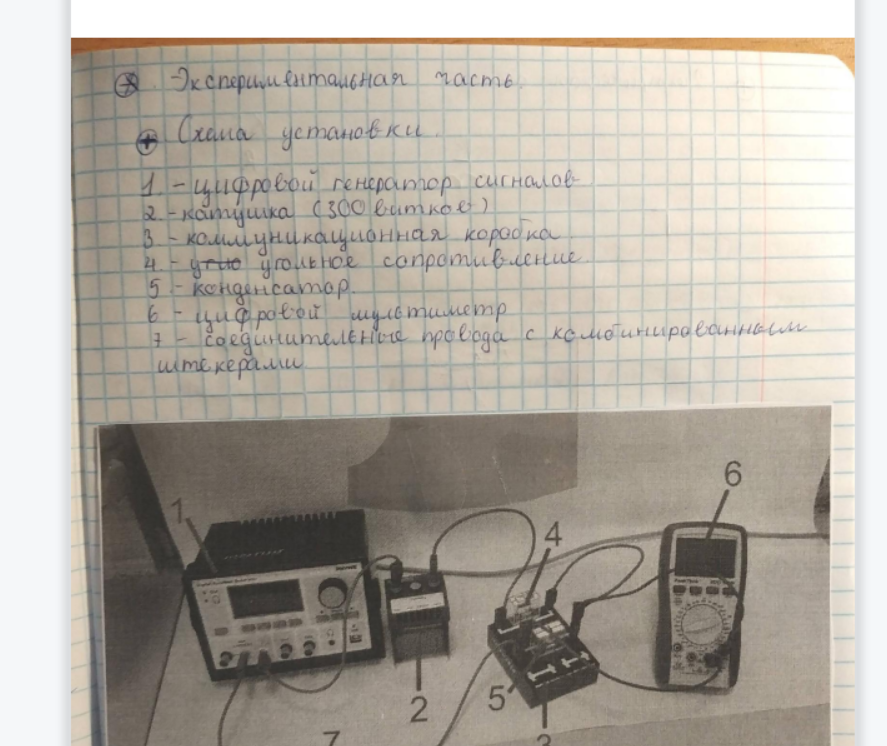 Экспериментальная часть.
Схема установки.
1 - цифровой генератор сигналов
2 - катушка (300 витков)
3 - коммуникационная коробка
4 - угольное сопротивление
5 - конденсатор.
6 - цифровой мультиметр
7 - соединительные провода с комбинированным
штекерами
1
6
4
2
5
3
7